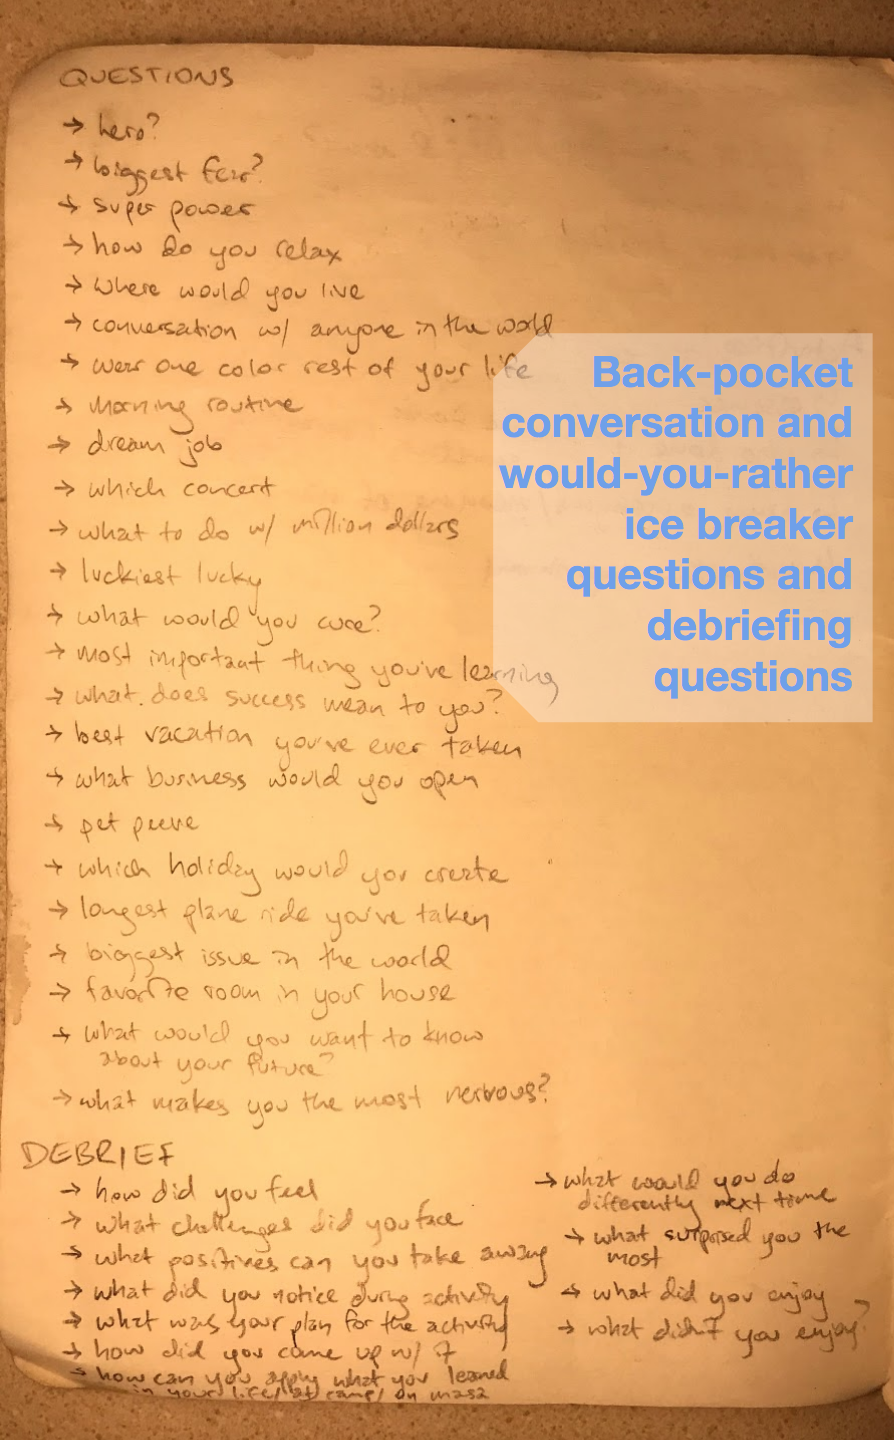 QUESTIONS
→ hero?
→ biggest fear?
→ super power
→ how do you relax
→ where would you live
→ conversation w/ anyone in the world
→ wear one color rest of your life
→ morning routine
→ dream job
→ which concert
→ what to do w/ million dollars
→ luckiest lucky
→ what would you cure?
→ most important thing you've learning
→ what does success mean to you?
→ best vacation you've ever taken
→ what business would you open
→ pet peeve
→ which holiday would you create
→ longest plane ride you've taken
→ biggest issue in the world
→ favorite room in your house
→ what would you want to know
about your future?
→ what makes you the most nervous?
Back-pocket
conversation and
would-you-rather
ice breaker
questions and
debriefing
questions
DEBRIEF
→ how did you feel
→ what challenges did you face
→ what positives can you take away
→ what did you notice during activity
→ what was your plan for the activity
→ how did you come up w/ it
→ how can you apply what you learned
in your life/ at camp/ on masa
→ what would you do
differently next time
→ what surprised you the
most
→ what did you enjoy
→ what didn't you enjoy?